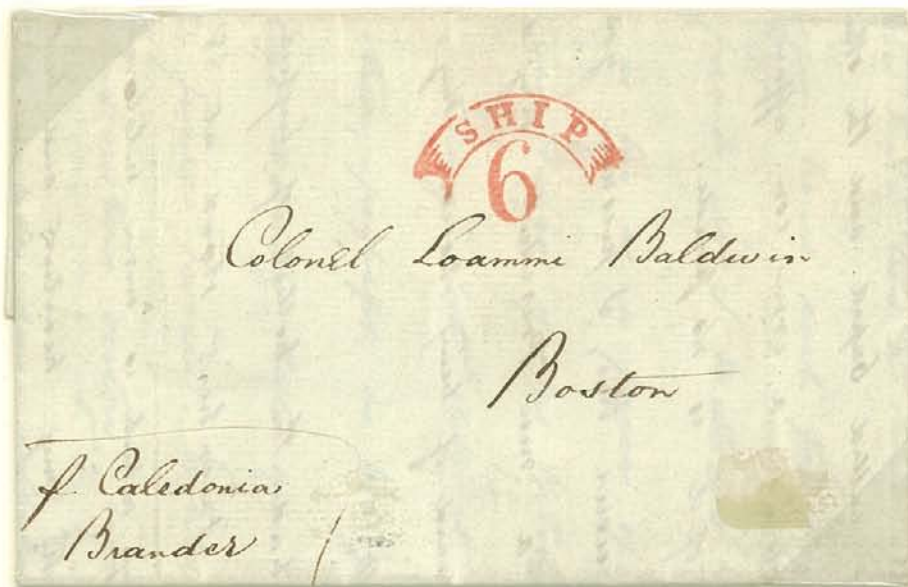 SHIP
6
Colonel Loammi Baldwin
Boston
p. Caledonia
Brander